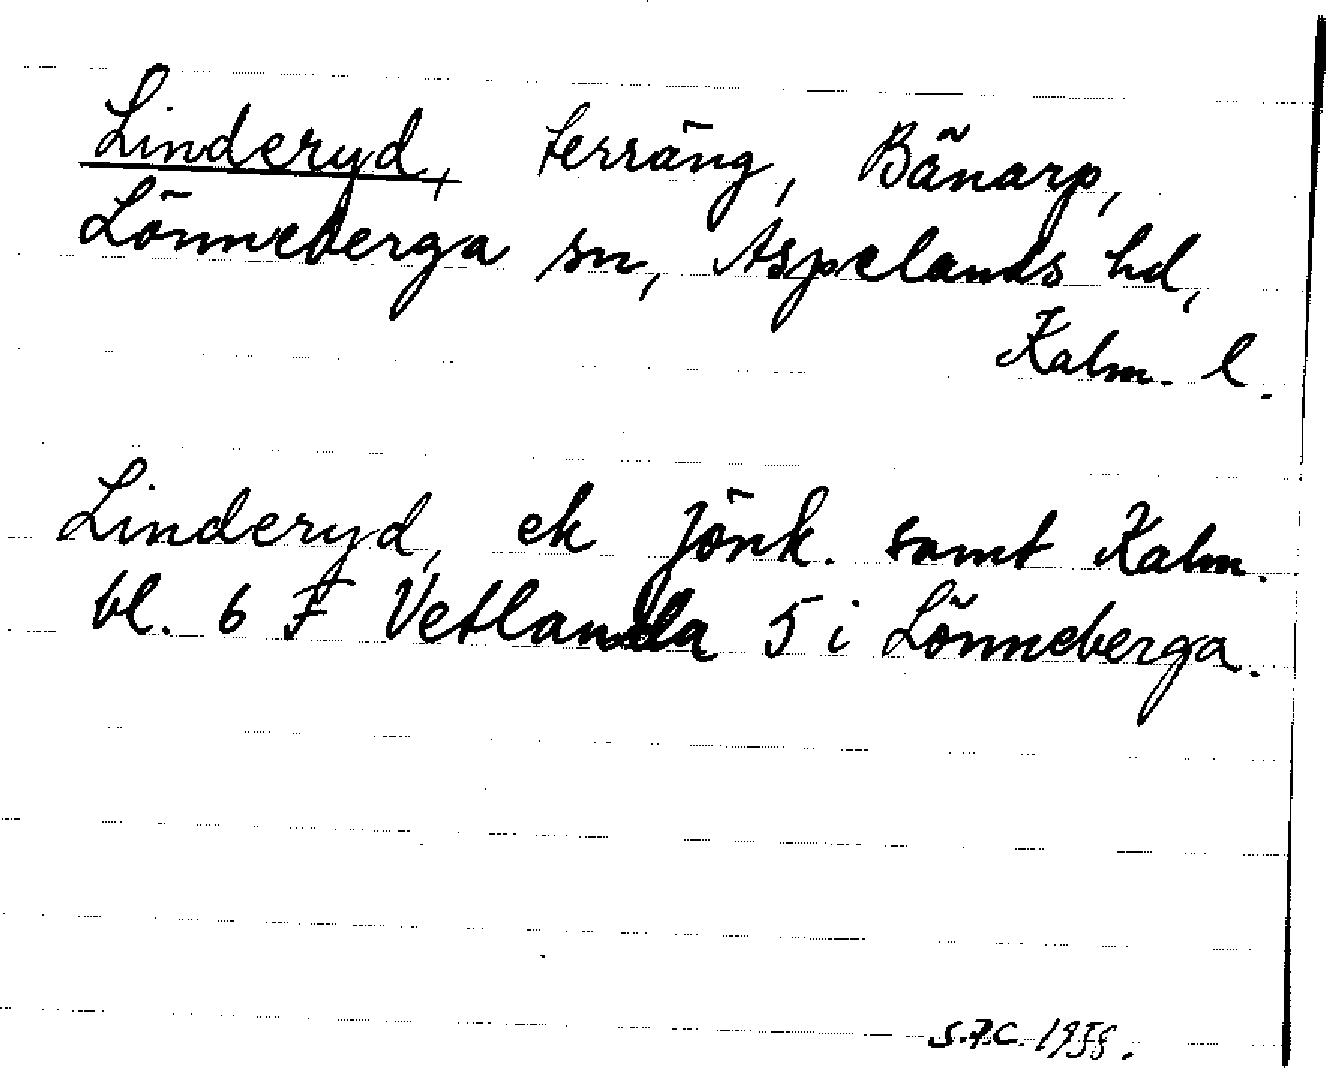 Linderyd, terräng, Bänarp,
Lönneberga sn, Aspelands hd,
Kalm. l.
Linderyd, ek Jönk. samt Kalm.
bl. 6 F Vetlanda 5 i Lönneberga.
S.F.C. 1958.